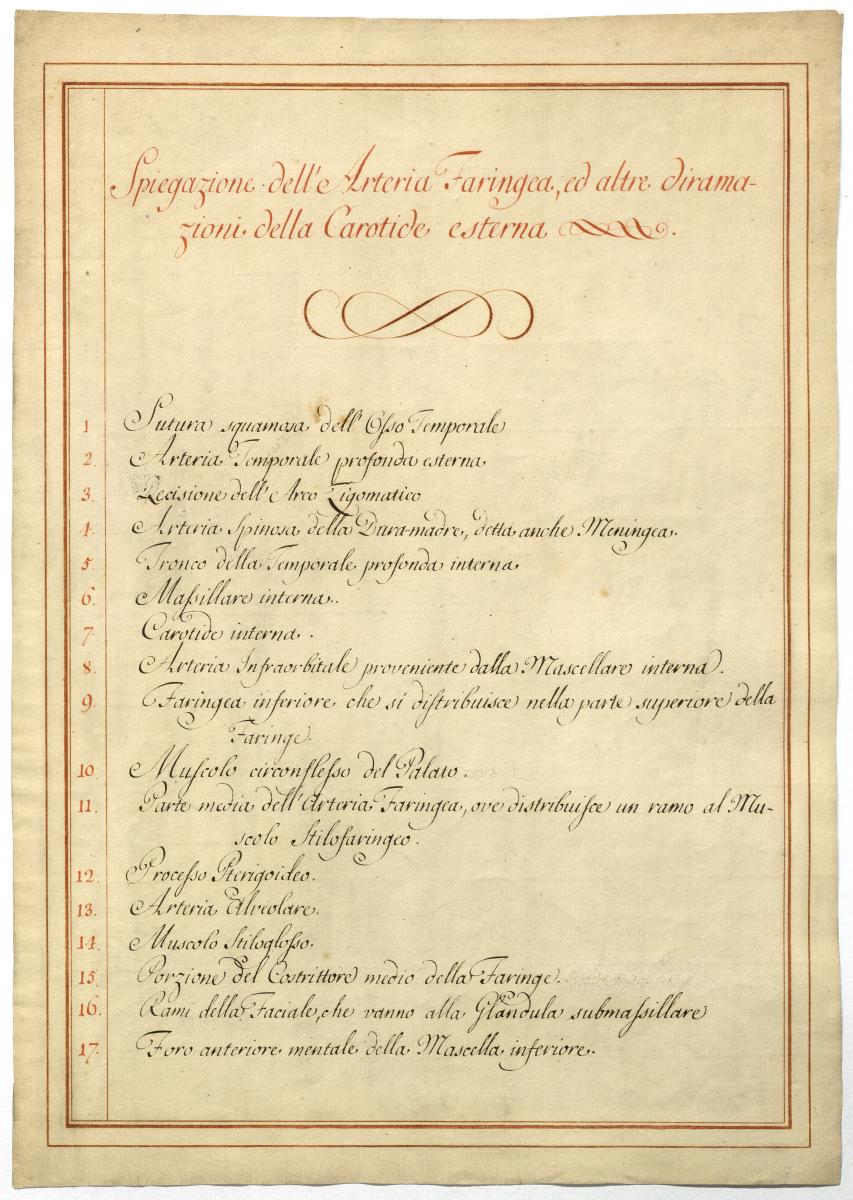 Spiegazione dell'Arteria Faringea, ed altre dirama-
zioni della Carotide esterna.
1 Sutura squamosa dell'Osso Temporale
2. Arteria Temporale profonda esterna
3. Recisione dell'Arco Zigomatico
4. Arteria Spinosa della Dura-madre, detta anche Meningea.
5. Tronco della Temporale profonda interna
6. Maſsillare interna..
7. Carotide interna.
8. Arteria Infraorbitale proveniente dalla Mascellare interna.
9. Faringea inferiore che si diſtribuisce nella parte superiore della
Faringe.
10. Muſcolo circonfleſso del Palato.
11. Parte media dell'Arteria Faringea, ove distribuiſce un ramo al Mu-
scolo Stilofaringeo.
12. Proceſso Pterigoideo.
13. Arteria Alveolare.
14. Muscolo Stilogloſso.
15. Porzione del Costrittore medio della Faringe.
16. Rami della Facciale, che vanno alla Glandula submaſsillare
17. Foro anteriore mentale della Mascella inferiore.